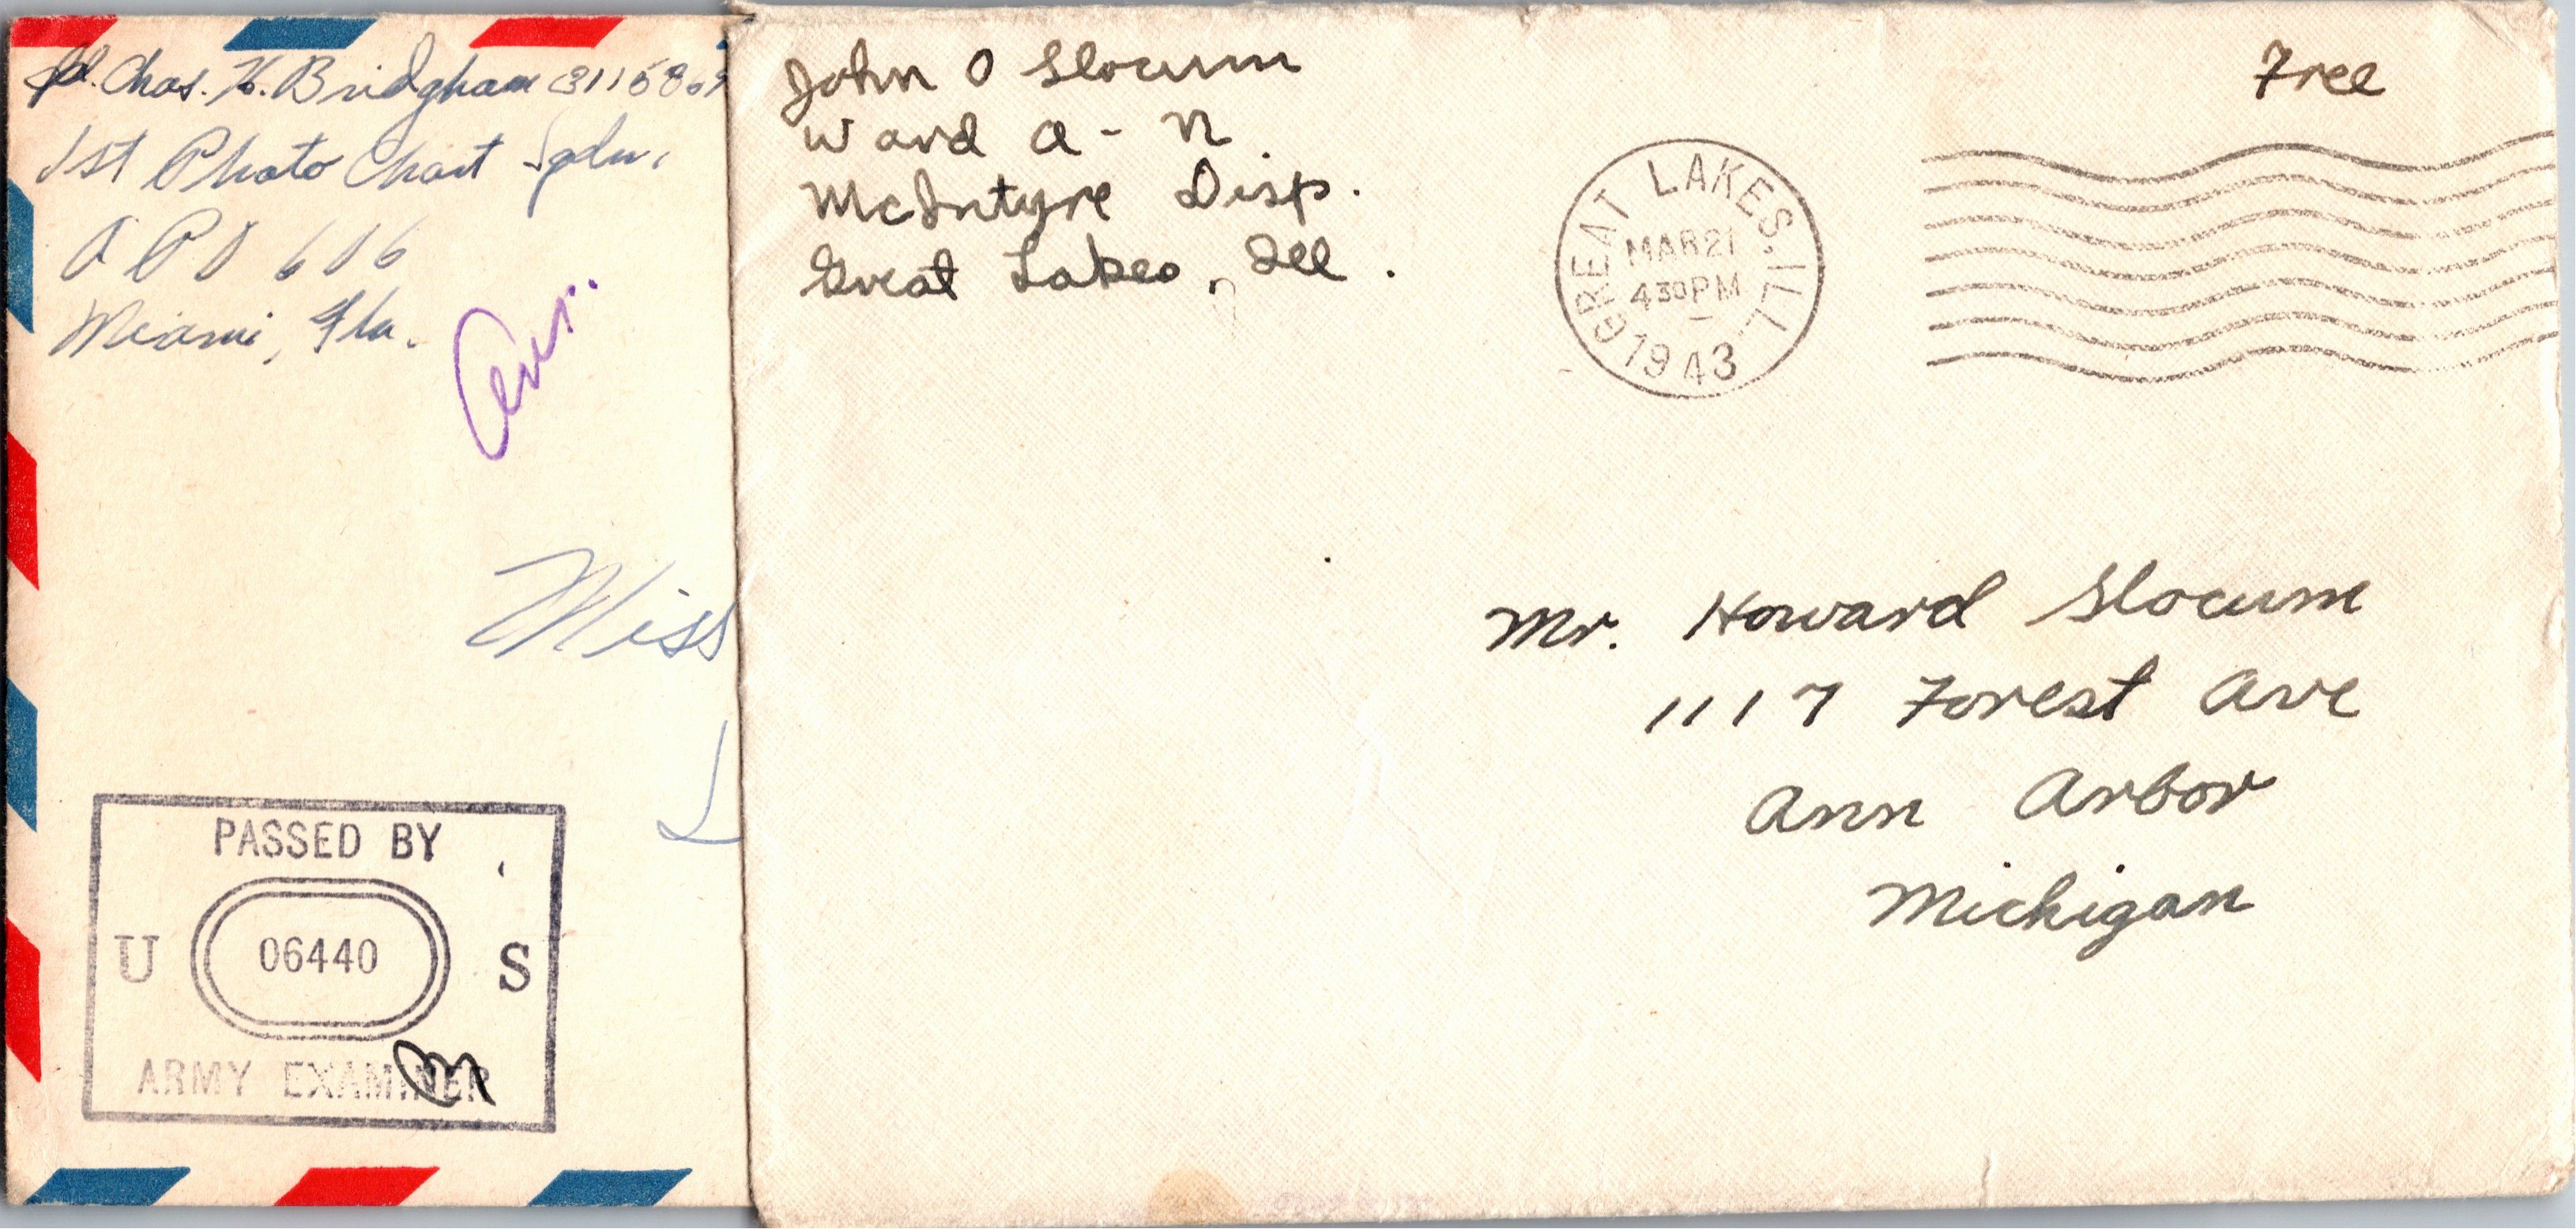 Chas. H. Bridgham 3115869
1st Photo Chart Sqdn.
A P O 606
Miami, Fla.
Miss
PASSED BY
U 06440 S
ARMY EXAMINER
John O Slocum
Ward A - N
McIntyre Disp.
Great Lakes, Ill.
Free
GREAT LAKES, ILL.
MAR 21
4 30 PM
1943
Mr. Howard Slocum
1117 Forest Ave
Ann Arbor
Michigan